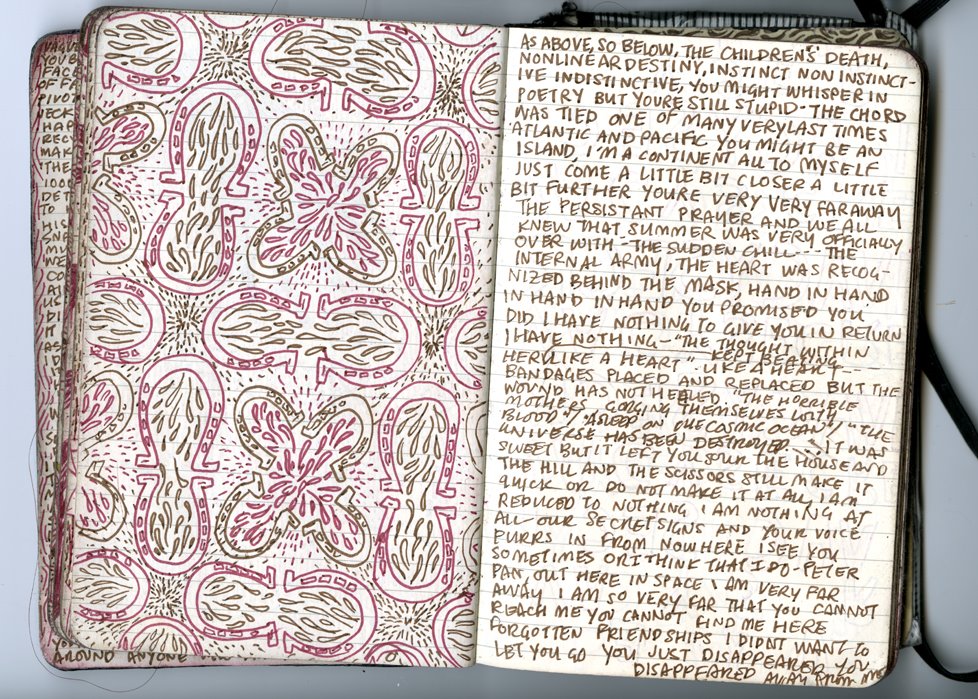 AROUND ANYONE
AS ABOVE, SO BELOW, THE CHILDREN'S DEATH,
NONLINEAR DESTINY, INSTINCT NON INSTINCT-
IVE INDISTINCTIVE, YOU MIGHT WHISPER IN
POETRY BUT YOURE STILL STUPID - THE CHORD
WAS TIED ONE OF MANY VERY LAST TIMES
ATLANTIC AND PACIFIC YOU MIGHT BE AN
ISLAND, I'M A CONTINENT ALL TO MYSELF
JUST COME A LITTLE BIT CLOSER A LITTLE
BIT FURTHER YOURE VERY VERY FAR AWAY
THE PERSISTANT PRAYER AND WE ALL
KNEW THAT SUMMER WAS VERY OFFICIALLY
OVER WITH - THE SUDDEN CHILL --- THE
INTERNAL ARMY, THE HEART WAS RECOG-
NIZED BEHIND THE MASK, HAND IN HAND
IN HAND IN HAND YOU PROMISED YOU
DID I HAVE NOTHING TO GIVE YOU IN RETURN
I HAVE NOTHING - "THE THOUGHT WITHIN
HER LIKE A HEART" KEPT BEATING
LIKE A HEART ---
BANDAGES PLACED AND REPLACED BUT THE
WOUND HAS NOT HEALED. "THE HORRIBLE
MOTHERS GORGING THEMSELVES WITH
BLOOD" "ASLEEP ON THE COSMIC OCEAN" "THE
UNIVERSE HAS BEEN DESTROYED --- IT WAS
SWEET BUT IT LEFT YOU SOUR THE HOUSE AND
THE HILL AND THE SCISSORS STILL MAKE IT
QUICK OR DO NOT MAKE IT AT ALL, I AM
REDUCED TO NOTHING I AM NOTHING AT
ALL OUR SECRET SIGNS AND YOUR VOICE
PURRS IN FROM NOWHERE I SEE YOU
SOMETIMES OR I THINK THAT I DO - PETER
PAN, OUT HERE IN SPACE I AM VERY FAR
AWAY I AM SO VERY FAR THAT YOU CANNOT
REACH ME YOU CANNOT FIND ME HERE
FORGOTTEN FRIENDSHIPS I DIDNT WANT TO
LET YOU GO YOU JUST DISAPPEARED YOU
DISAPPEARED AWAY FROM ME